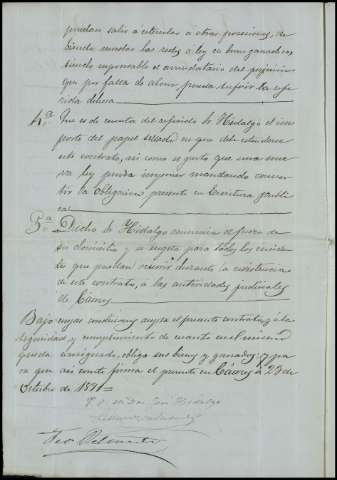 puedan salir a
siendo responsable el arrendatario del perjuicio
que por falta de abono pueda sufrir la refe-
rida dehesa
4ª Que es de cuenta del referido Sr Hidalgo el im-
porte del papel sellado en que debe estenderse
este contrato, así como el gasto que una nue-
va ley pueda imponer mandando conver-
tir la obligacion presente en Escritura publi-
ca
5ª Dicho Sr Hidalgo renuncia el fuero de
su domicilio y se sugeta para todos los inciden-
tes que puedan durante la
de este contrato, a las autoridades judiciales
de Cáceres
Bajo cuyas condiciones acepta el presente contrato, y á la
seguridad y cumplimiento de cuanto en el mismo
queda consignado, obliga sus bienes y ganados, y pa-
ra que así conste firma el presente en Cáceres á 23 de
Octubre de 1891=
Hidalgo